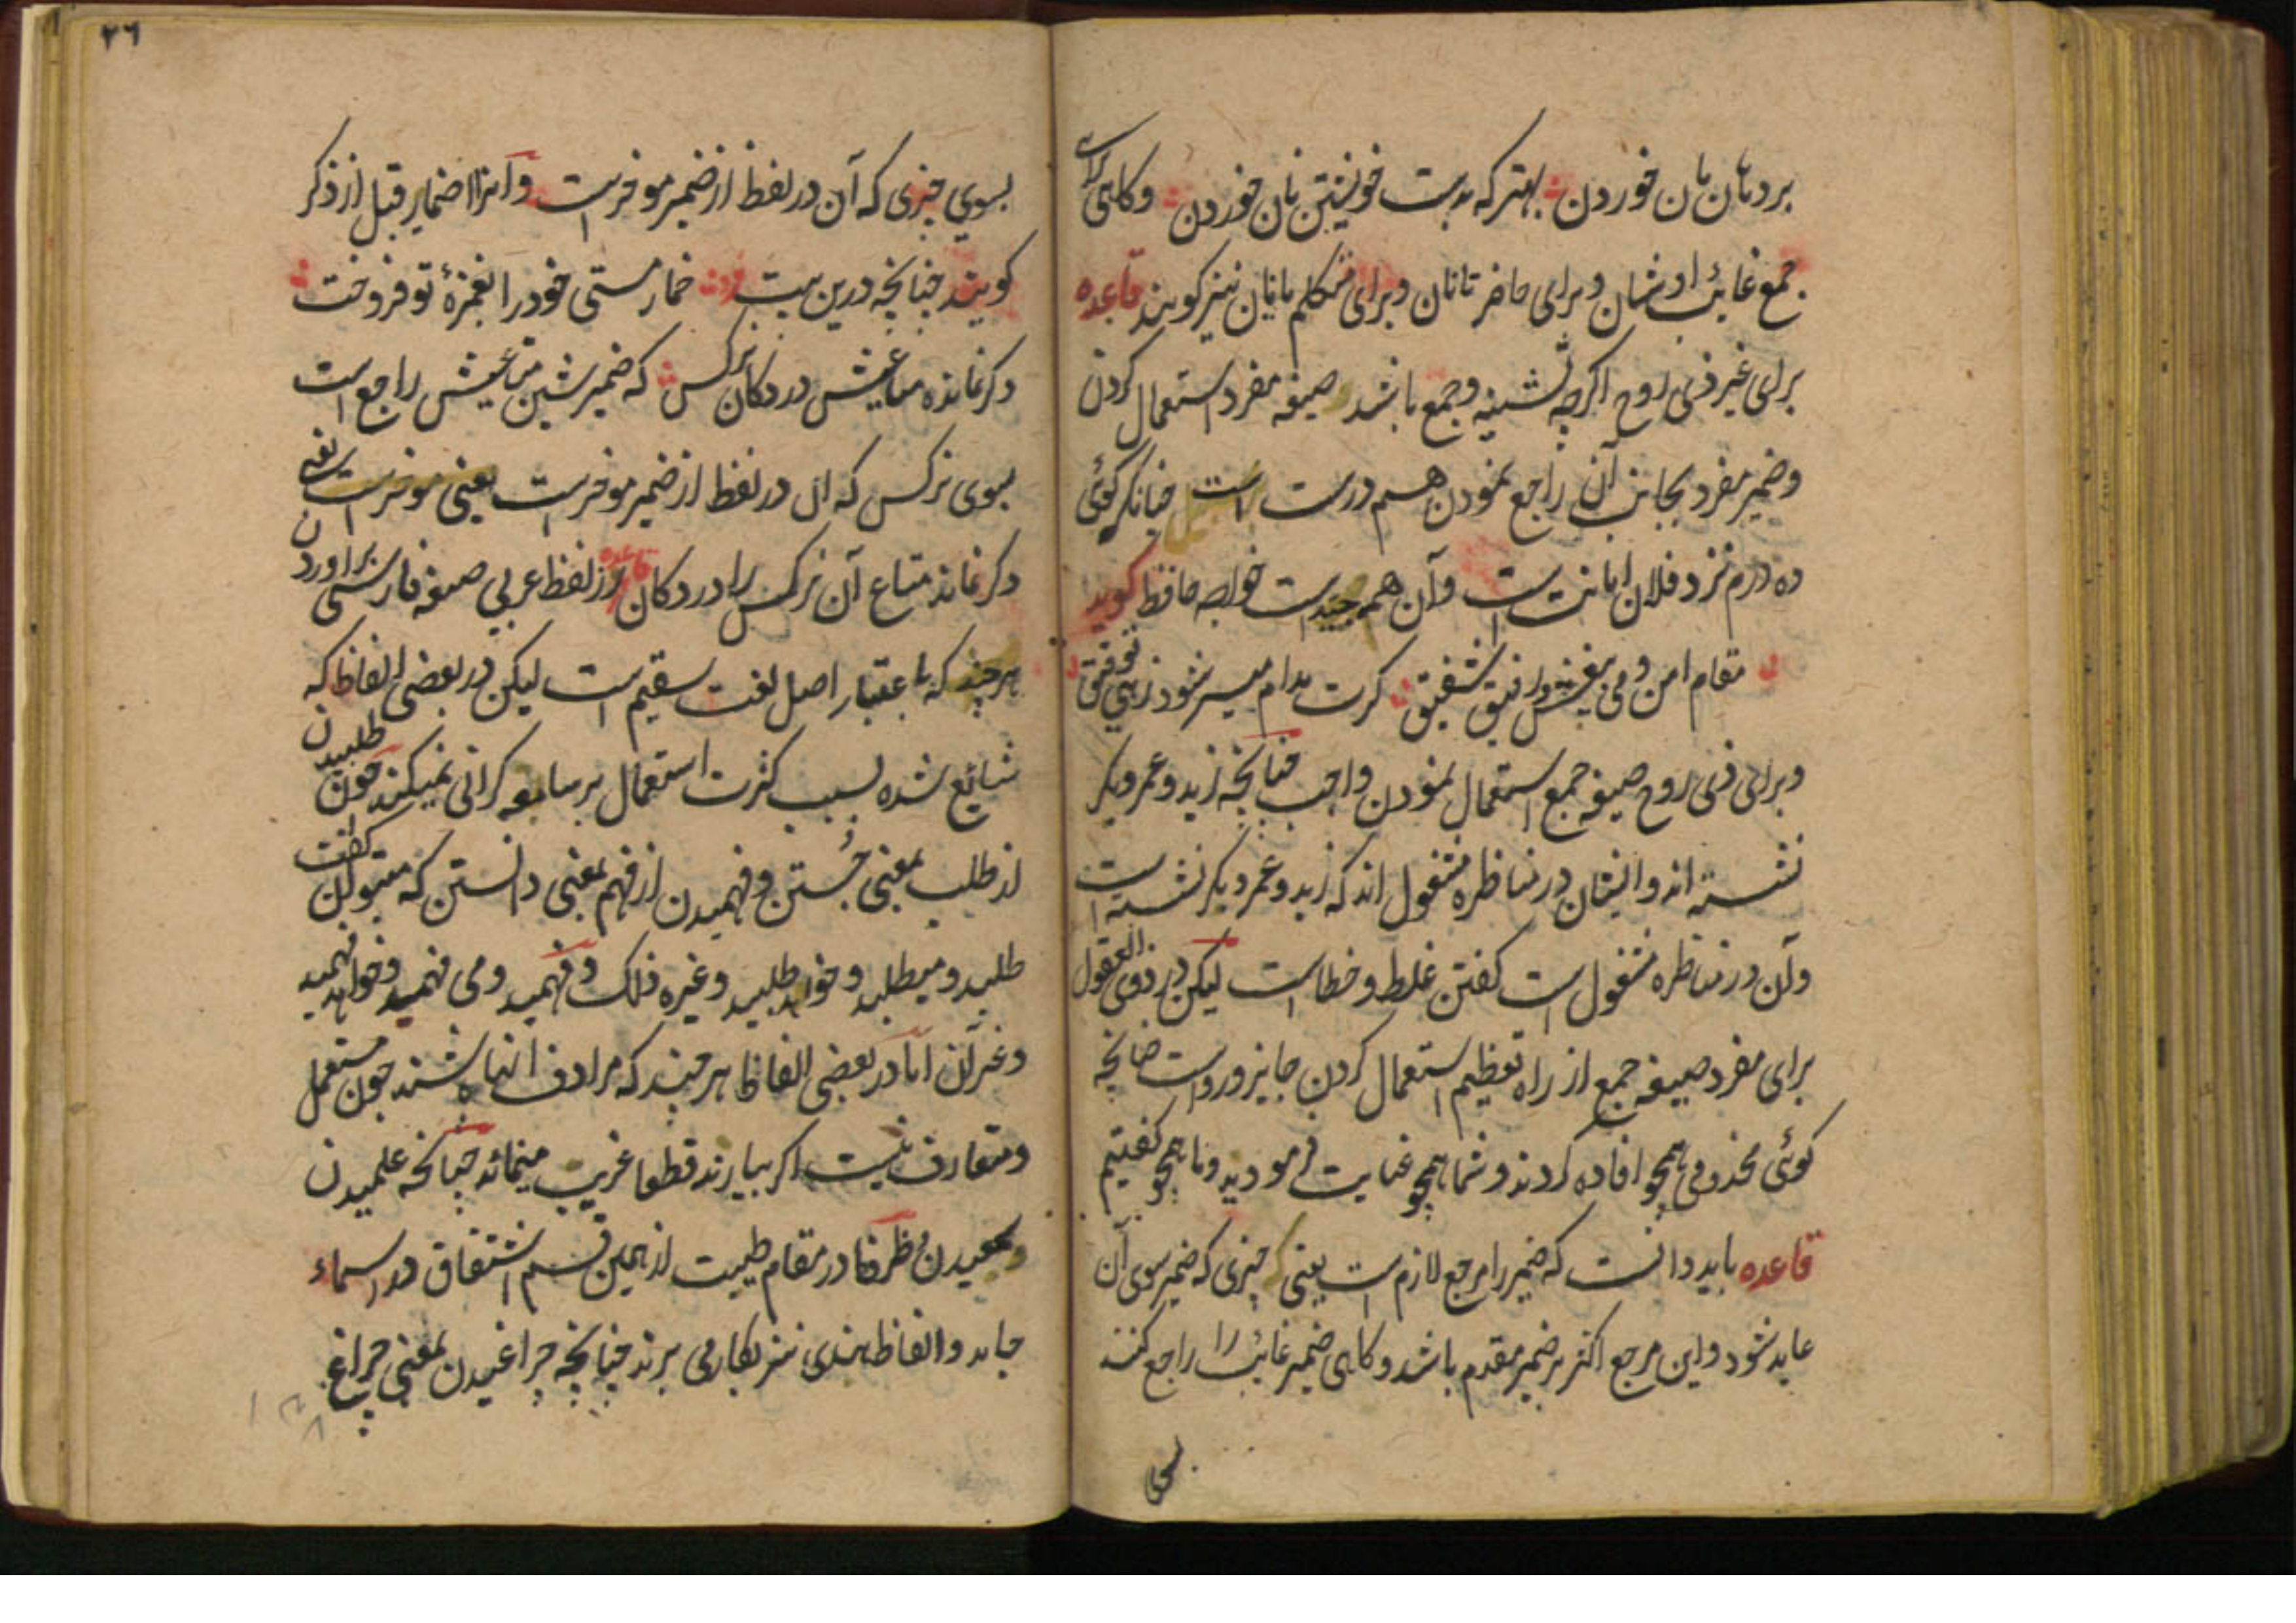 بردنان نان خوردن بهتر که بدست خویشتن نان خوردن وکاهی برای
جمع غائب اوشان وبرای حاضر تانان وبرای متکلم مانان نیز کویند قاعده
برای غیر ذی روح اکرچه تثنیه وجمع باشد صیغه مفرد استعمال کردن
وضمیر مفرد بجانب آن راجع نمودن هم درست است چنانکه کوئی
ده درم نزد فلان امانت است وآن همه جیدست خواجه حافظ کوید
مقام امن ومی بیغش ورفیق شفیق کرت مدام میسر شود زهی توفیق
وبرای ذی روح صیغه جمع استعمال نمودن واجب چنانچه زید وعمر وبکر
نشسته اند وایشان در مناظره مشغول اند که زید وعمر وبکر نشسته است
وآن در مناظره مشغول است کفتن غلط وخطاست لیکن در ذوی العقول
برای مفرد صیغه جمع از راه تعظیم استعمال کردن جایز ورواست چنانچه
کوئی مخدومی همچو افاده کردند وشما همچو عنایت فرمودید وما همچو کفتیم
قاعده باید دانست که ضمیر را مرجع لازم ست یعنی چیزی که ضمیر سوی آن
عاید شود واین مرجع اکثر بر ضمیر مقدم باشد وکاهی ضمیر غائب را راجع کنند
بسوی
۲۶
بسوی چیزی که آن در لفظ از ضمیر موخرست وآنرا اضمار قبل از ذکر
کویند چنانچه درین بیت خمار مستی خود را بغمزهٔ تو فروخت
دکر نمانده متاعیش در دکان نرکس که ضمیر شین متاعیش راجع است
بسوی نرکس که آن در لفظ از ضمیر موخرست یعنی موخرست یعنی
دکر نماند متاع آن نرکس را در دکان قاعده از لفظ عربی صیغه فارسی براوردن
هرچند که باعتبار اصل لغت سقیم است لیکن در بعضی الفاظ که
شائع شده بسبب کثرت استعمال بر سامعه کرانی نمیکند چون طلبیدن
از طلب بمعنی جستن وفهمیدن از فهم بمعنی دانستن که میتوان کفت
طلبید ومیطلبد وخواهد طلبید وغیره ذلک وفهمید ومی فهمد وخواهد فهمید
وغیر آن اما در بعضی الفاظ هرچند که مرادف انها باشند چون مستعمل
ومتعارف نیست اکر بیارند قطعا غریب مینماید چنانچه علمیدن
ظرفا در مقام طیبت از همین قسم اشتقاق در اسماء
جامد والفاظ هندی نیز بکار می برند چنانچه چراغیدن بمعنی چراغ